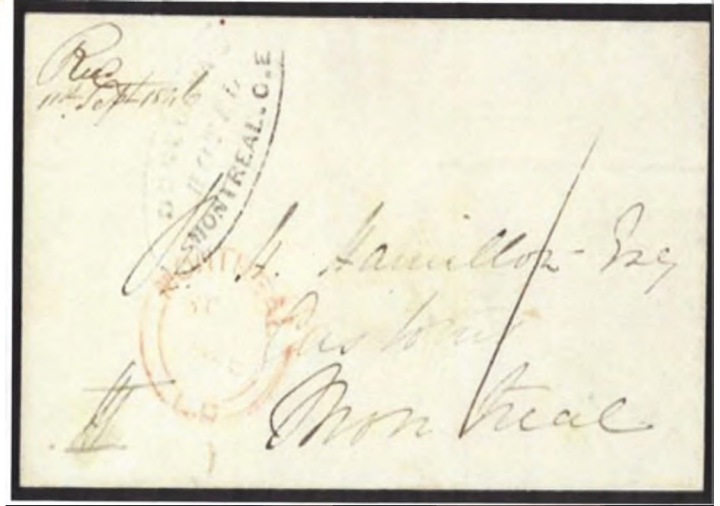 Rec
11th Sept 1846
HOTEL
MONTREAL. C.E
H. Hamilton Esq
Customs
Montreal
L.C